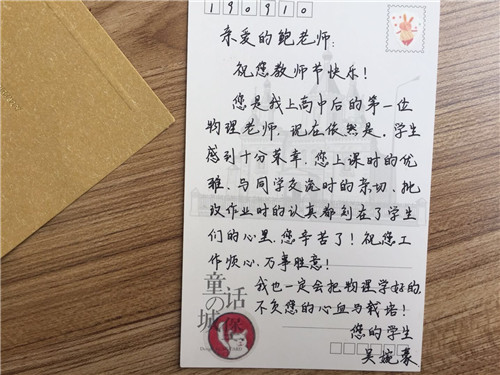 190910
亲爱的鲍老师:
祝您教师节快乐!
您是我上高中后的第一位
物理老师,现在依然是,学生
感到十分荣幸,您上课时的优
雅、与同学交流时的亲切、批
改作业时的认真都刻在了学生
们的心里,您辛苦了!祝您工
作顺心,万事胜意!
我也一定会把物理学好的,
不负您的心血与栽培!
您的学生
吴婉豪
童话
の
城堡